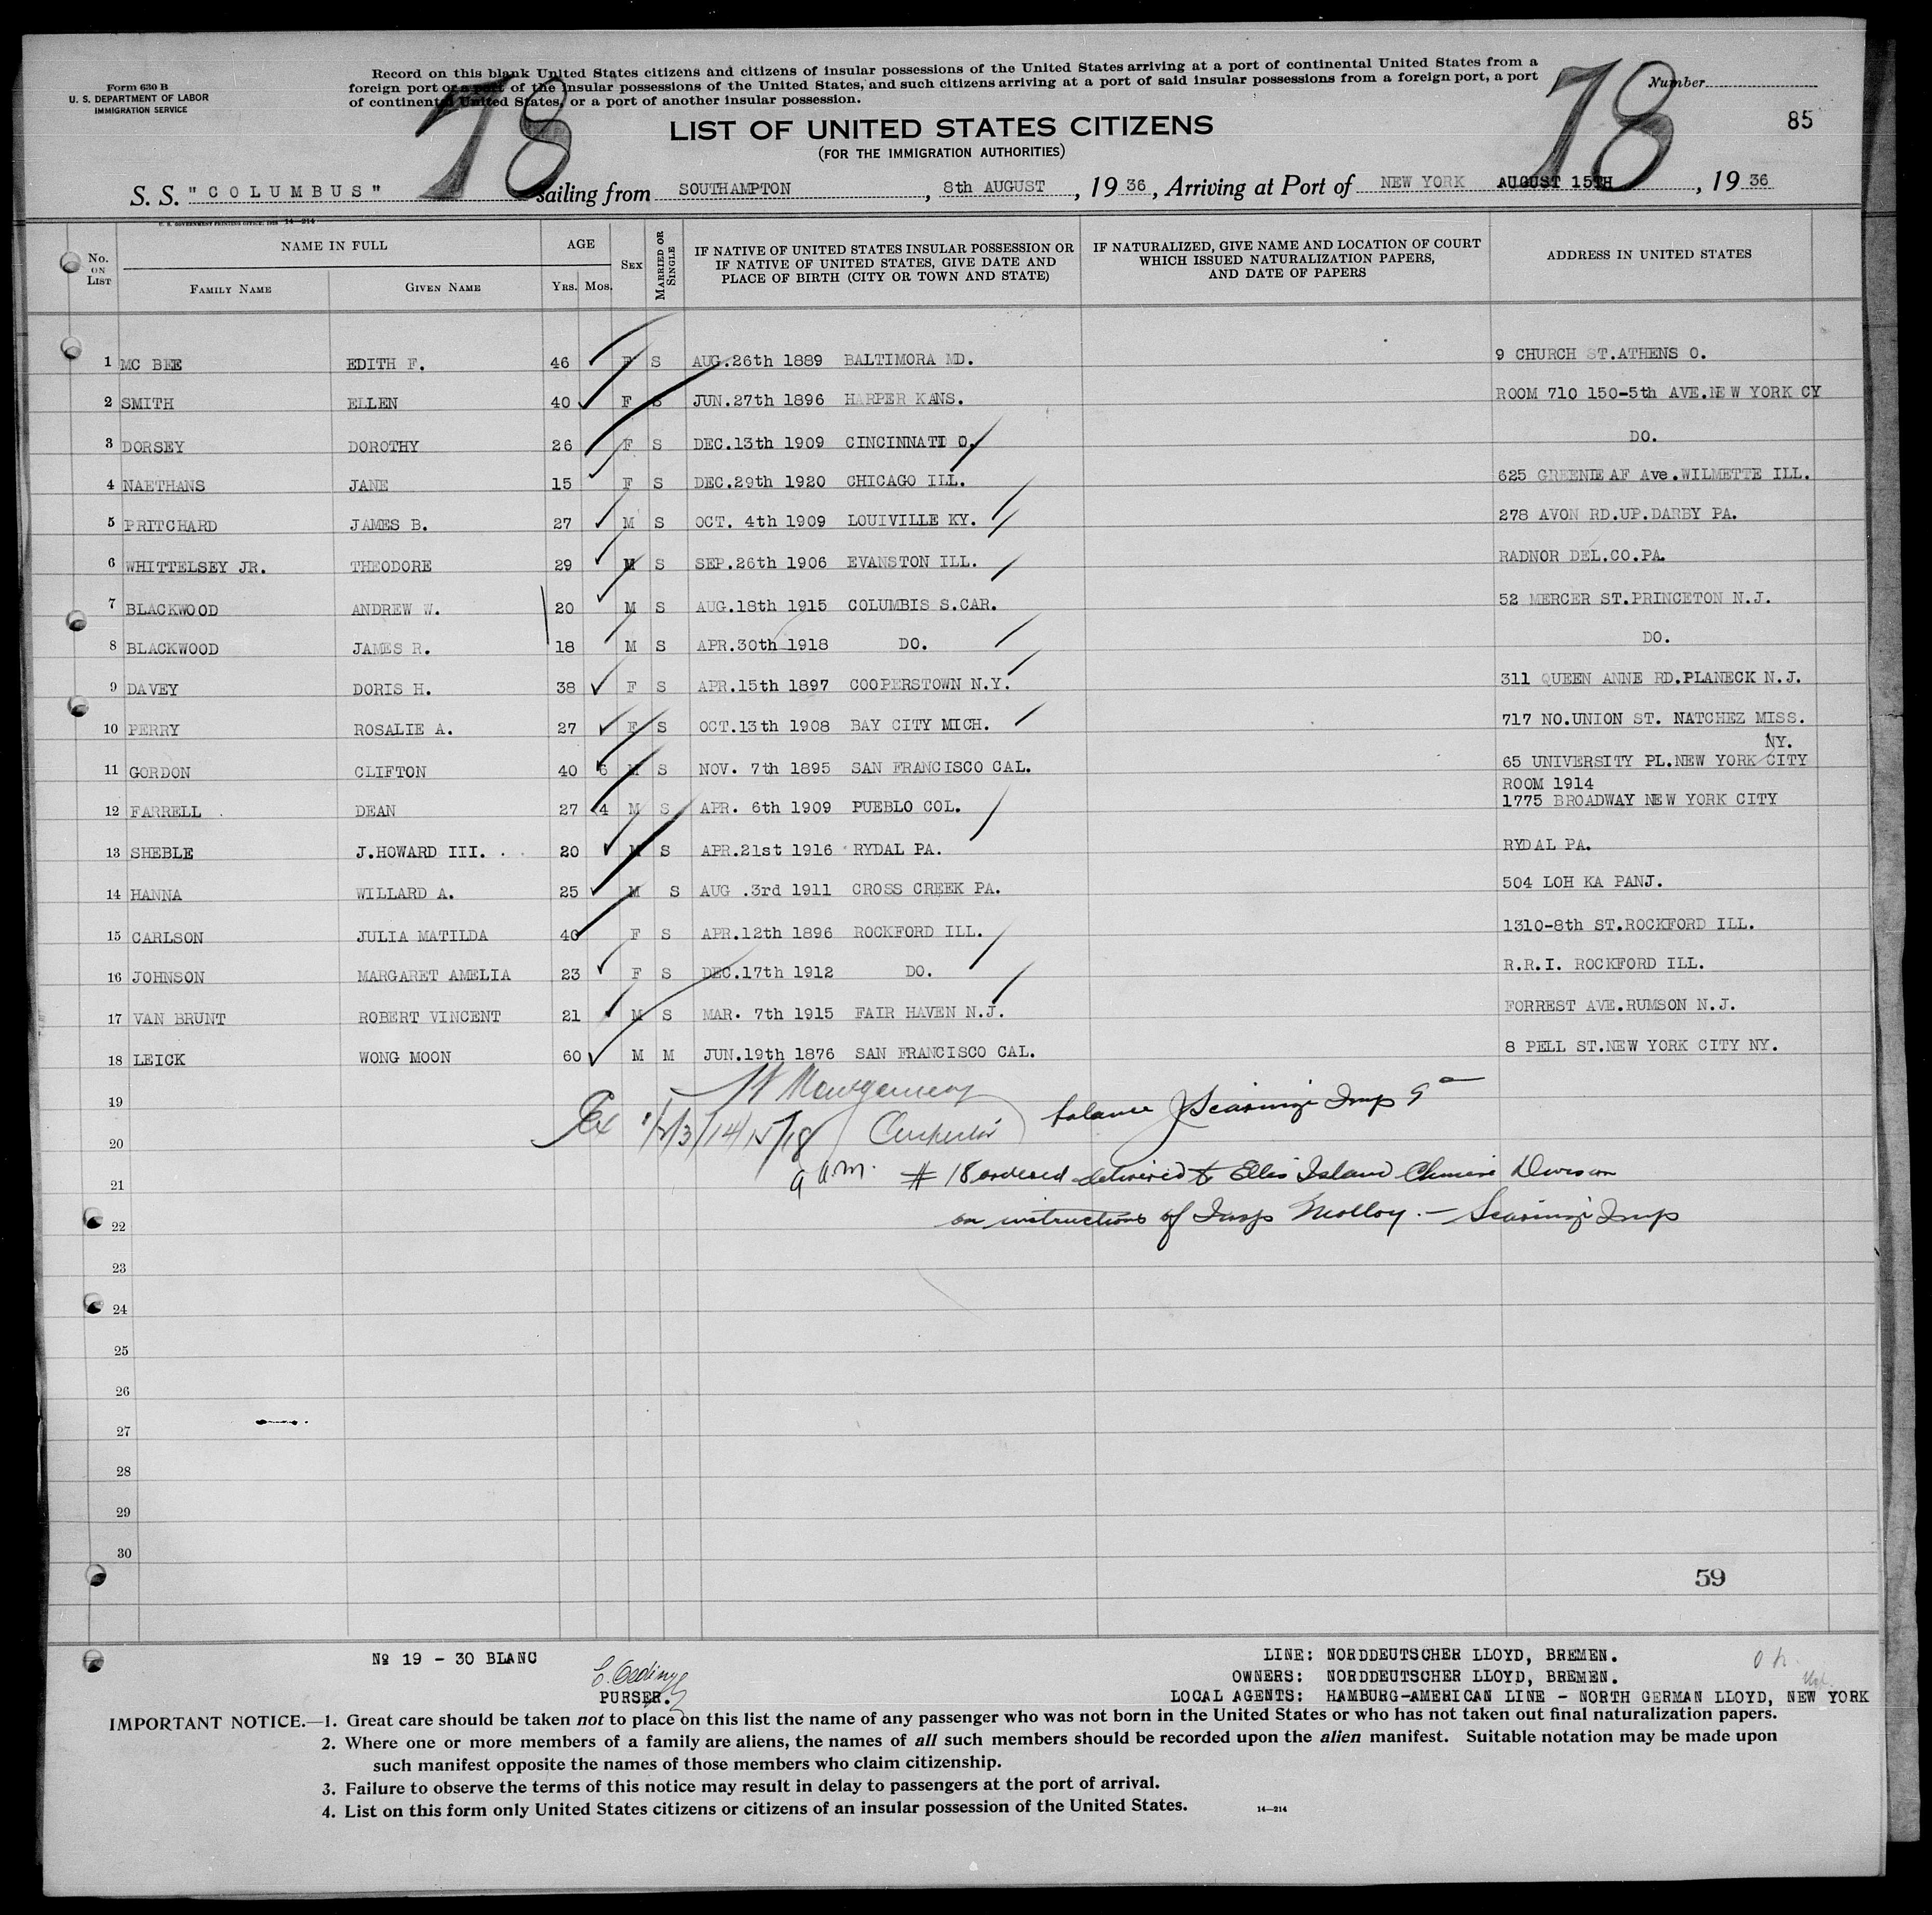 Form 630 B
U. S. DEPARTMENT OF LABOR
IMMIGRATION SERVICE
Record on this blank United States citizens and citizens of insular possessions of the United States arriving at a port of continental United States from a
foreign port or a port of the insular possessions of the United States, and such citizens arriving at a port of said insular possessions from a foreign port, a port
of continental United States, or a port of another insular possession.
Number
78
78
85
LIST OF UNITED STATES CITIZENS
(FOR THE IMMIGRATION AUTHORITIES)
S. S. "COLUMBUS" sailing from SOUTHAMPTON, 8th AUGUST, 1936, Arriving at Port of NEW YORK AUGUST 15TH, 1936
U. S. GOVERNMENT PRINTING OFFICE: 14—214
No. ON LIST NAME IN FULL AGE SEX MARRIED OR SINGLE IF NATIVE OF UNITED STATES INSULAR POSSESSION OR IF NATIVE OF UNITED STATES, GIVE DATE AND PLACE OF BIRTH (CITY OR TOWN AND STATE) IF NATURALIZED, GIVE NAME AND LOCATION OF COURT WHICH ISSUED NATURALIZATION PAPERS, AND DATE OF PAPERS ADDRESS IN UNITED STATES
FAMILY NAME GIVEN NAME YRS. MOS.
1 MC BEE EDITH F. 46 F S AUG.26th 1889 BALTIMORA MD. 9 CHURCH ST.ATHENS O.
2 SMITH ELLEN 40 F S JUN.27th 1896 HARPER KANS. ROOM 710 150-5th AVE.NEW YORK CY
3 DORSEY DOROTHY 26 F S DEC.13th 1909 CINCINNATI O. DO.
4 NAETHANS JANE 15 F S DEC.29th 1920 CHICAGO ILL. 625 GREENLEAF Ave.WILMETTE ILL.
5 PRITCHARD JAMES B. 27 M S OCT. 4th 1909 LOUIVILLE KY. 278 AVON RD.UP.DARBY PA.
6 WHITTELSEY JR. THEODORE 29 M S SEP.26th 1906 EVANSTON ILL. RADNOR DEL.CO.PA.
7 BLACKWOOD ANDREW W. 20 M S AUG.18th 1915 COLUMBIS S.CAR. 52 MERCER ST.PRINCETON N.J.
8 BLACKWOOD JAMES R. 18 M S APR.30th 1918 DO. DO.
9 DAVEY DORIS H. 38 F S APR.15th 1897 COOPERSTOWN N.Y. 311 QUEEN ANNE RD.PLANECK N.J.
10 PERRY ROSALIE A. 27 F S OCT.13th 1908 BAY CITY MICH. 717 NO.UNION ST. NATCHEZ MISS.
NY.
11 GORDON CLIFTON 40 6 M S NOV. 7th 1895 SAN FRANCISCO CAL. 65 UNIVERSITY PL.NEW YORK CITY
ROOM 1914
12 FARRELL DEAN 27 4 M S APR. 6th 1909 PUEBLO COL. 1775 BROADWAY NEW YORK CITY
13 SHEBLE J.HOWARD III. 20 M S APR.21st 1916 RYDAL PA. RYDAL PA.
14 HANNA WILLARD A. 25 M S AUG .3rd 1911 CROSS CREEK PA. 504 LOH KA PANJ.
15 CARLSON JULIA MATILDA 40 F S APR.12th 1896 ROCKFORD ILL. 1310-8th ST.ROCKFORD ILL.
16 JOHNSON MARGARET AMELIA 23 F S DEC.17th 1912 DO. R.R.I. ROCKFORD ILL.
17 VAN BRUNT ROBERT VINCENT 21 M S MAR. 7th 1915 FAIR HAVEN N.J. FORREST AVE.RUMSON N.J.
18 LEICK WONG MOON 60 M M JUN.19th 1876 SAN FRANCISCO CAL. 8 PELL ST.NEW YORK CITY NY.
19 Montgomery balance Insp
20 14/15/18
21 9 a.m. # 18 ordered delivered to Ellis Island Chinese Division
22 on instructions of Insp Molloy. — Insp
23
24
25
26
27
28
29
30
59
№ 19 - 30 BLANC
PURSER.
LINE: NORDDEUTSCHER LLOYD, BREMEN.
OWNERS: NORDDEUTSCHER LLOYD, BREMEN.
LOCAL AGENTS: HAMBURG-AMERICAN LINE - NORTH GERMAN LLOYD, NEW YORK
IMPORTANT NOTICE.—1. Great care should be taken not to place on this list the name of any passenger who was not born in the United States or who has not taken out final naturalization papers.
2. Where one or more members of a family are aliens, the names of all such members should be recorded upon the alien manifest. Suitable notation may be made upon
such manifest opposite the names of those members who claim citizenship.
3. Failure to observe the terms of this notice may result in delay to passengers at the port of arrival.
4. List on this form only United States citizens or citizens of an insular possession of the United States.
14—214